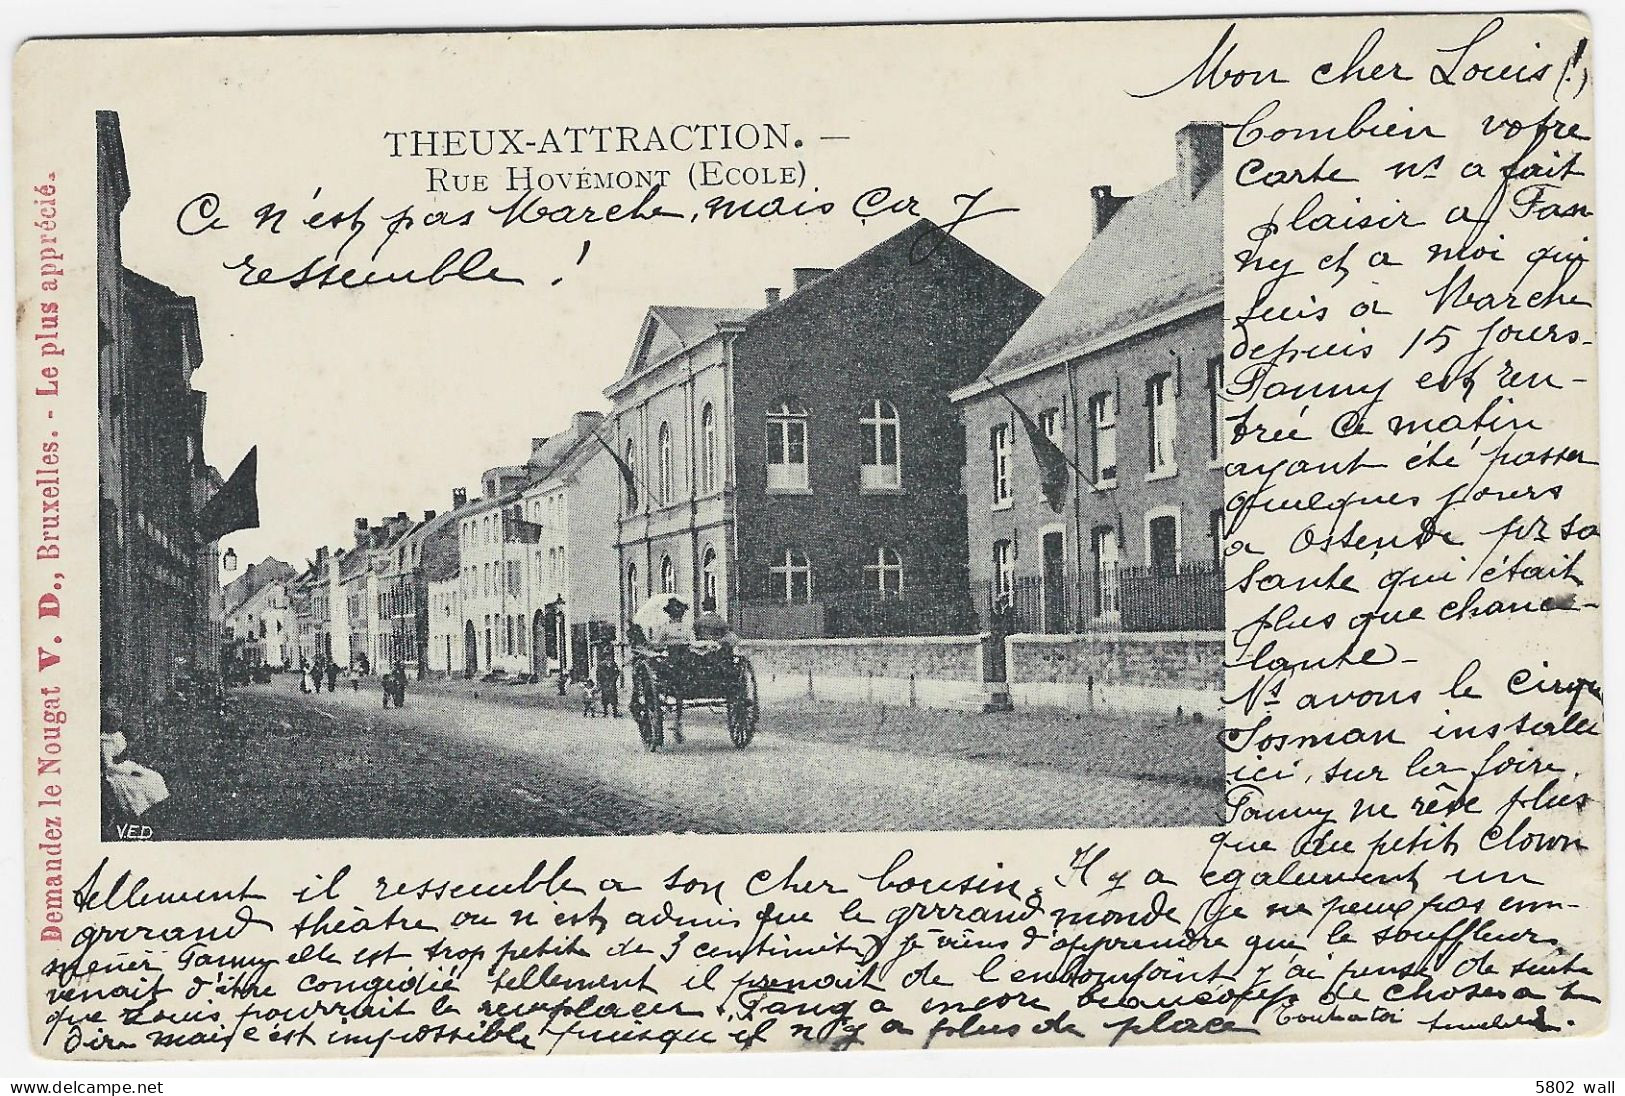 THEUX-ATTRACTION. —
RUE HOVÉMONT (ECOLE)
Ce n'est pas Marche, mais ça y
ressemble !
Demandez le Nougat V. D., Bruxelles. - Le plus apprécié.
V.E.D
Mon cher Louis (!)
Combien votre
carte ns a fait
plaisir a Fan
ny et a moi qui
suis a Marche
depuis 15 jours.
Fanny est ren-
trée ce matin
ayant été passer
quelques jours
a Ostende pr sa
santé qui était
plus que chance-
lante.
Ns avons le cirque
Sosman installé
ici, sur la foire.
Fanny ne rêve plus
que du petit clown
tellement il ressemble a son cher cousin. Il y a egalement un
grrrand théatre ou n'est admis que le grrrand monde (je ne peux pas em-
mener Fanny elle est trop petite de 3 centimit.) je viens d'apprendre que le souffleur
venait d'être congédié tellement il prenait de l'embonpoint, j'ai pensé de suite
que Louis pourrait le remplacer. Fany a encore beaucoup de choses a te
dire mais c'est impossible puisqu il n y a plus de place Tout a toi
5802 wall